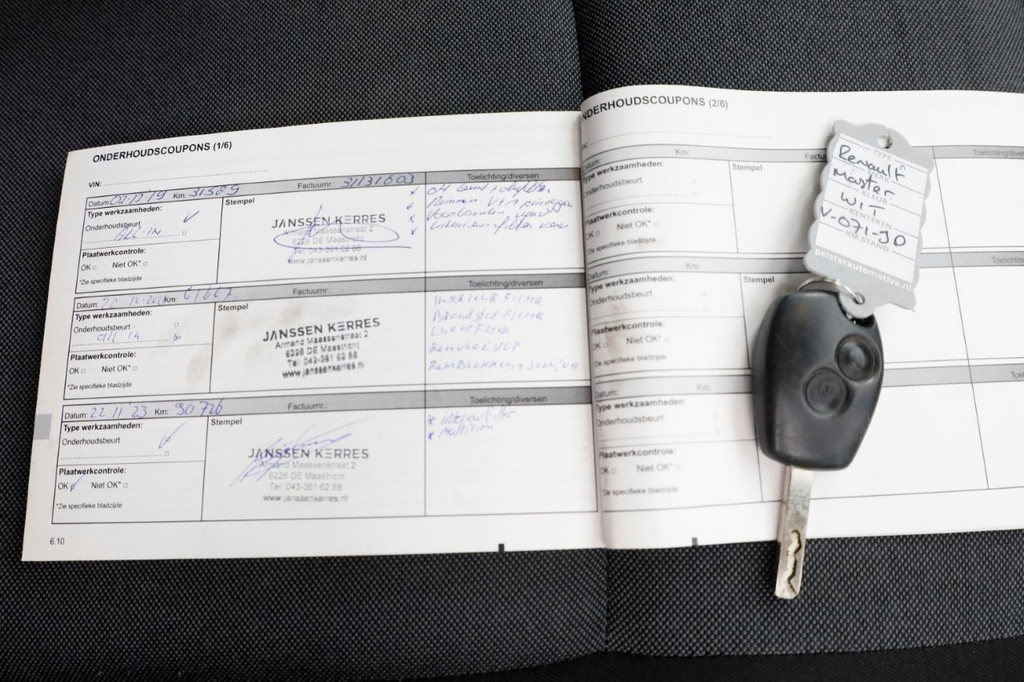 ONDERHOUDSCOUPONS (1/6)
VIN:
Datum: 02-12-19 Km: 31509 Factuurnr.: 31731603 Toelichting/diversen
Type werkzaamheden:
Onderhoudsbeurt
ALL-IN
Plaatwerkcontrole:
OK Niet OK*
*Zie specifieke bladzijde
Stempel
JANSSEN KERRES
6226 DE Maastricht
www.janssenkerres.nl
Interieurfilter
Datum: Km: 61667 Factuurnr.: Toelichting/diversen
Type werkzaamheden:
Onderhoudsbeurt
all in
Plaatwerkcontrole:
OK Niet OK*
*Zie specifieke bladzijde
Stempel
JANSSEN KERRES
Armand Maassenstraat 2
6226 DE Maastricht
Tel: 043-361 62 88
www.janssenkerres.nl
Interieur Filter
Brandstof Filter
Lucht Filter
Datum: 22 11 '23 Km: 90726 Factuurnr.: Toelichting/diversen
Type werkzaamheden:
Onderhoudsbeurt
Plaatwerkcontrole:
OK Niet OK*
*Zie specifieke bladzijde
Stempel
JANSSEN KERRES
Armand Maassenstraat 2
6226 DE Maastricht
Tel: 043-361 62 88
www.janssenkerres.nl
6.10
NDERHOUDSCOUPONS (2/6)
Datum: Km:
Type werkzaamheden:
Onderhoudsbeurt
Plaatwerkcontrole:
OK Niet OK*
*Zie specifieke bladzijde
Stempel
Toelichting/diversen
Datum: Km:
Type werkzaamheden:
Onderhoudsbeurt
Plaatwerkcontrole:
OK Niet OK*
*Zie specifieke bladzijde
Stempel
Datum: Km:
Type werkzaamheden:
Onderhoudsbeurt
Plaatwerkcontrole:
OK Niet OK*
*Zie specifieke bladzijde
Stempel
TYPE
Renault
Master
KLEUR
WIT
KENTEKEN
V-071-JD
KM STAND
pelsterautomotive.nl